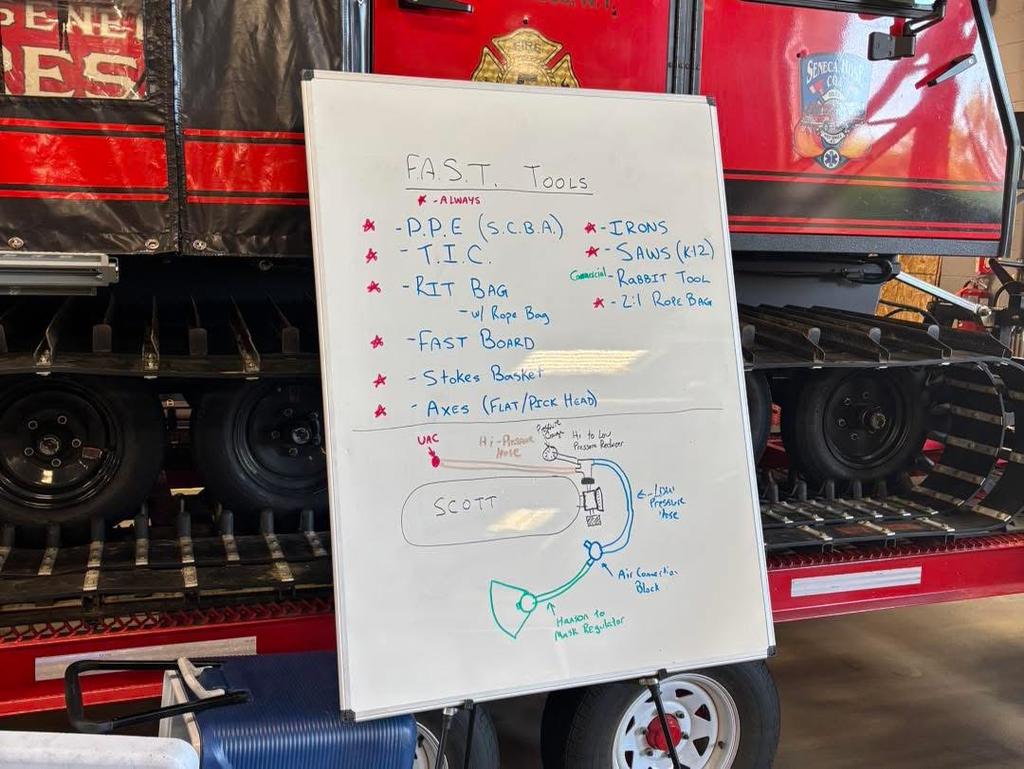 SENE
RES
FIRE
SENECA HOSE
CO.
F.A.S.T. TOOLS
★ - ALWAYS
★ - P.P.E (S.C.B.A.)
★ - T.I.C.
★ - RIT BAG
- w/ Rope Bag
★ - FAST BOARD
★ - Stokes Basket
★ - AXES (FLAT/PICK HEAD)
★ - IRONS
★ - SAWS (K-12)
Commercial - RABBIT TOOL
★ - 2:1 ROPE BAG
UAC
Hi-Pressure
Hose
Pressure
Gauge
Hi to Low
Pressure Reducer
SCOTT
Low
Pressure
Hose
Air Connection
Block
Hanson to
Mask Regulator